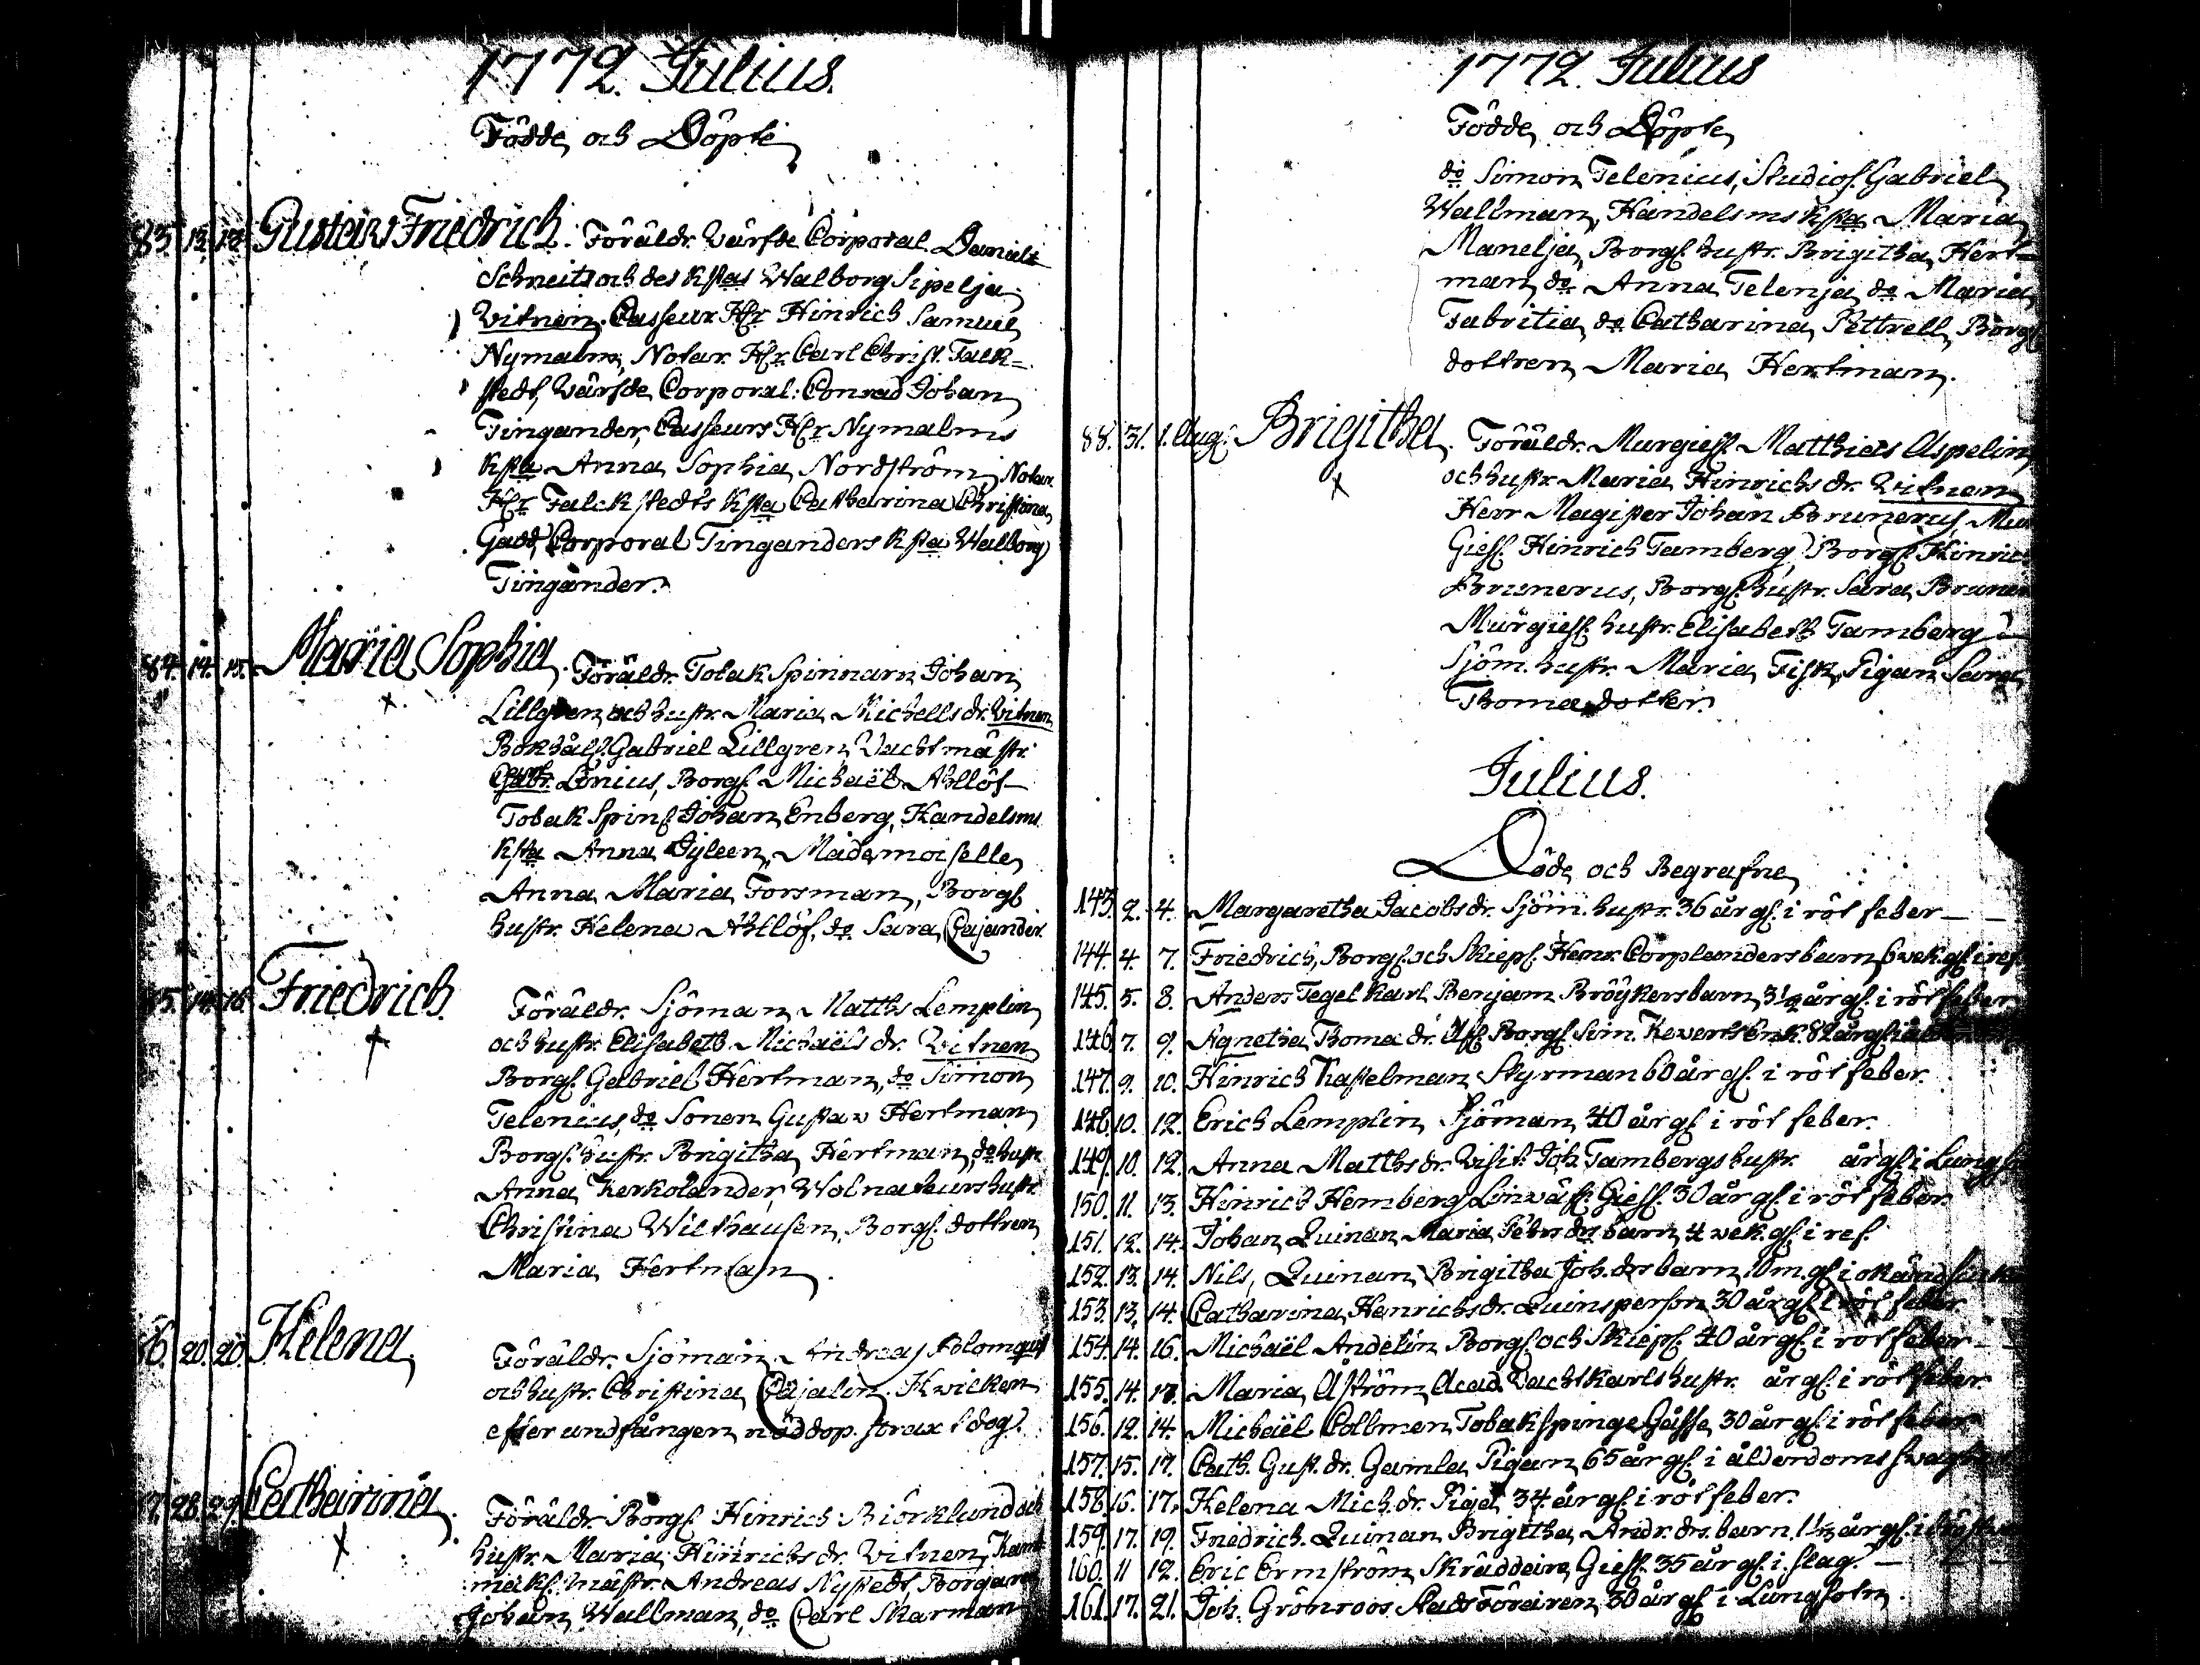 1772. Julius.
Födde och Döpte
83. 12. 13. Gustav Friedrich. Föräldr. Värfde Corporal Daniel
Schneitz och des Ksta Walborg Sipelja
Vitnen. Casseur Hr Hinrich Samuel
Nymalm, Notar. Hr Carl Christ. Falk-
stedt, Värfde Corporal: Conrad Johan
Tingander, Casseurs Hr Nymalms
Ksta Anna Sophia Nordström, Notar.
Hr Falckstedts Ksta Catharina Christina
Gadd, Corporal Tinganders Ksta Walborg
Tingander.
84. 14. 15. Maria Sophia. Föräldr. Tobak Spinnarn Johan
Lillgren och hustr. Maria Michells dr. Vitnen
Bokhålf. Gabriel Lillgren, Vachtmästr.
Lönius, Borgf. Michaël Ahllöf
Tobak Spinf Johan Enberg, Handelsms
Ksta Anna Gyleen, Mademoiselle
Anna Maria Forsman, Borgf
hustr. Helena Ahllöf, do Sara Cajander.
85. 14. 16. Friedrich. Föräldr. Sjöman Matths Lemplin
och hustr. Elisabeth Michaëls dr. Vitnen
Borgf. Gabriel Hertman, do Simon
Telenius, do Sonen Gustav Hertman
Borgf. hustr. Brigitha Hertman, do hustr
Anna Kerkolander, Wolnateurs hustr.
Christina Wilthausen, Borgf. dottren
Maria Hertman.
86. 20. 20. Helena. Föräldr. Sjöman Andreas Blomqvist
och hustr. Christina Cajalin. Hvicken
efter undfången nöddop. strax dog.
87. 28. 29. Catharina. Föräldr. Borgf Hinrich Björklund och
hustr. Maria Hinrichs dr. Vitnen,
makf. mästr. Andreas Nystedt Borgaren
Johan Wallman, do Carl Skarman
1772. Julius
Födde och Döpte
do Simon Telenius, Studiof. Gabriel
Wallman, Handelsms Ksta Maria
Manelja, Borgf. hustr. Brigitha Hert-
man, do Anna Telenja, do Maria
Fabritia, do Catharina Pettrell, Borgf
dottren Maria Hertman.
88. 31. 1. Aug. Brigitha. Föräldr. Murgiesf. Matthias Aspelin
och hustr. Maria Hinrichs dr. Vitnen
Herr Magister Johan Brunerus, Mur
Giesf. Hinrich Tamberg, Borgf. Hinric
Brunerus, Borgf. hustr. Sara Bruner
Murgiesf. hustr. Elisabeth Tamberg
Sjöm. hustr. Maria Fisk, Pigan Sara
Thomadotter.
Julius.
Döde och Begrafne
143. 2. 4. Margaretha Jacobsdr. Sjöm. hustr. 36 år gf. i röt feber
144. 4. 7. Friedrich, Borgf. och Skiepf. Henr. Corplanders barn, 6 vek. gf. i ref.
145. 5. 8. Anders Tegelkarl Benjam Bröykers barn, 3 1/2 år gf. i röt feber
146. 7. 9. Agnetha Thomadr. Aff. Borgf. Sim. Keverts Enk. 82 år gf. i
147. 9. 10. Hinrich Kastelman Styrman 60 år gf. i röt feber.
148. 10. 12. Erich Lemplin, Sjöman 40 år gf. i röt feber.
149. 10. 12. Anna Matthsdr. Visit. Joh. Tambergs hustr. år gf. i Lung
150. 11. 13. Hinrich Hemberg Linväf. Giesf. 30 år gf. i röt feber.
151. 12. 14. Johan, Quinan Maria Petersdrs barn 4 vek. gf. i ref.
152. 13. 14. Nils, Quinan Brigitha Joh. drs barn 10 m. gf. i okänd
153. 13. 14. Catharina Henrichsdr. Quinsperson 30 år gf. i röt feber
154. 14. 16. Michaël Andelin Borgf. och Skiepf. 40 år gf. i röt feber
155. 14. 17. Maria Åström, Acad. Vachtkarls hustr. år gf. i röt feber
156. 12. 14. Michaël Collmen Tobakspinge Gässe, 30 år gf. i röt feber
157. 15. 17. Cath. Gust. dr. Gamla Pigan, 65 år gf. i ålderdoms
158. 16. 17. Helena Mich. dr. Piga 34 år gf. i röt feber.
159. 17. 19. Friedrich Quinan Brigitha Andr. drs. barn. 1 1/2 år gf. i
160. 11 12. Eric Ermström Skräddare Giesf. 35 år gf. i slag.
161. 17. 21. Joh. Grönroos Stads Föraren 30 år gf. i Lungsotn.